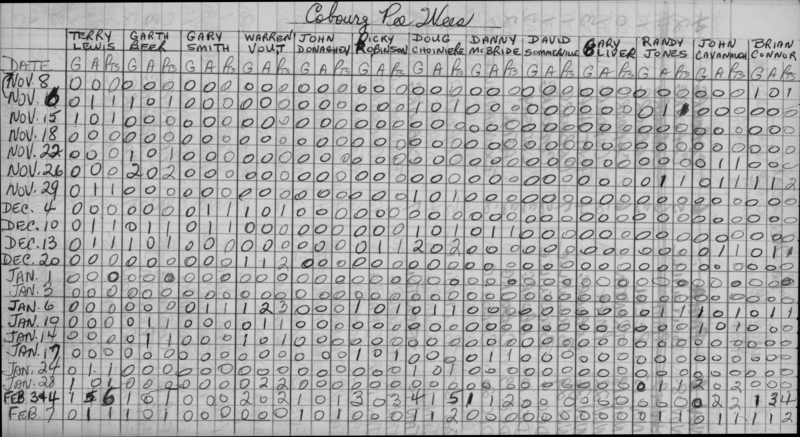 Cobourg Pee Wees
TERRY GARTH GARY WARREN JOHN RICKY DOUG DANNY DAVID GARY RANDY JOHN BRIAN
LEWIS BEER SMITH VOUT DONAGHEY ROBINSON CHOINIERE McBRIDE SOMMERVILLE OLIVER JONES CAVANAUGH CONNOR
DATE G A Pts G A Pts G A Pts G A Pts G A Pts G A Pts G A Pts G A Pts G A Pts G A Pts G A Pts G A Pts G A Pts
NOV. 8 0 0 0 0 0 0 0 0 0 0 0 0 0 0 0 0 0 0 0 0 0 0 0 0 0 0 0 0 0 0 0 0 0 0 0 0 1 0 1
NOV. 6 0 1 1 1 0 1 0 0 0 0 0 0 0 0 0 0 0 0 1 0 1 0 0 0 0 0 0 0 0 0 0 1 1 0 0 0 0 0 0
NOV. 15 1 0 1 0 0 0 0 0 0 0 0 0 0 0 0 0 0 0 0 0 0 0 0 0 0 0 0 0 0 0 0 0 0 0 0 0 0 0 0
NOV. 18 0 0 0 0 0 0 0 0 0 0 0 0 0 0 0 0 0 0 0 0 0 0 0 0 0 0 0 0 0 0 0 0 0 0 0 0 0 0 0
NOV. 22 0 0 0 1 0 1 0 0 0 0 0 0 0 0 0 0 0 0 0 0 0 0 0 0 0 0 0 0 0 0 0 0 0 0 1 1 0 0 0
NOV. 26 0 0 0 2 0 2 0 0 0 0 0 0 0 0 0 0 0 0 0 0 0 0 0 0 0 0 0 0 0 0 0 1 1 0 1 1 1 1 2
NOV. 29 0 1 1 0 0 0 0 0 0 0 0 0 0 0 0 0 0 0 1 0 1 0 0 0 0 0 0 0 0 0 0 0 0 0 0 0 0 0 0
DEC. 4 0 0 0 0 0 0 0 1 1 1 0 1 0 0 0 0 0 0 0 0 0 0 0 0 0 0 0 0 0 0 0 0 0 0 0 0 0 0 0
DEC. 10 0 1 1 0 1 1 0 1 1 0 0 0 0 0 0 0 0 0 1 0 1 0 1 1 0 0 0 0 0 0 0 0 0 0 0 0 0 0 0
DEC. 13 0 1 1 1 0 1 0 0 0 0 0 0 0 0 0 0 1 1 2 0 2 0 0 0 0 0 0 0 0 0 0 0 0 0 1 1 0 1 1
DEC. 20 0 0 0 0 0 0 0 0 0 1 1 2 0 0 0 0 0 0 0 0 0 0 0 0 0 0 0 0 0 0 0 0 0 0 0 0 0 0 0
JAN. 1 0 0 0 0 0 0 0 0 0 0 0 0 0 0 0 0 0 0 0 0 0 0 0 0 0 0 0 0 0 0 0 0 0 0 0 0 0 0 0
JAN. 3 0 0 0 0 0 0 0 0 0 0 0 0 0 0 0 0 0 0 0 0 0 0 0 0 0 0 0 0 0 0 0 0 0 0 0 0 0 0 0
JAN. 6 0 0 0 0 0 0 0 1 1 1 2 3 0 0 0 1 0 1 0 1 1 0 0 0 0 0 0 0 0 0 0 1 1 1 0 1 0 1 1
JAN. 10 0 0 0 0 1 1 0 0 0 0 1 1 0 0 0 0 0 0 0 0 0 0 0 0 0 0 0 0 0 0 0 0 0 1 0 1 0 0 0
JAN. 14 0 0 0 0 1 1 0 0 0 1 0 1 0 0 0 0 0 0 0 0 0 0 0 0 0 0 0 0 0 0 0 0 0 0 0 0 0 0 0
JAN. 17 0 0 0 0 0 0 0 0 0 0 0 0 0 0 0 1 0 1 0 0 0 0 1 1 0 0 0 0 0 0 0 0 0 0 0 0 0 0 0
JAN. 24 0 1 1 0 0 0 0 0 0 0 0 0 0 0 0 0 0 0 1 0 0 0 0 0 0 0 0 0 0 0 0 0 0 0 0 0 0 0
JAN. 28 1 0 1 0 0 0 0 0 0 0 2 2 0 0 0 0 0 0 0 0 0 0 0 0 0 0 0 0 0 0 0 1 1 2 0 2 0 0 0
FEB 3&4 1 5 6 1 0 1 0 0 0 2 0 2 1 0 1 3 0 3 4 1 5 1 1 2 0 0 0 0 0 0 0 0 0 0 2 2 1 3 4
FEB. 7 0 1 1 1 0 1 0 0 0 0 0 0 1 0 1 0 0 0 1 1 2 0 0 0 0 0 0 0 0 0 0 1 1 0 1 1 1 1 2